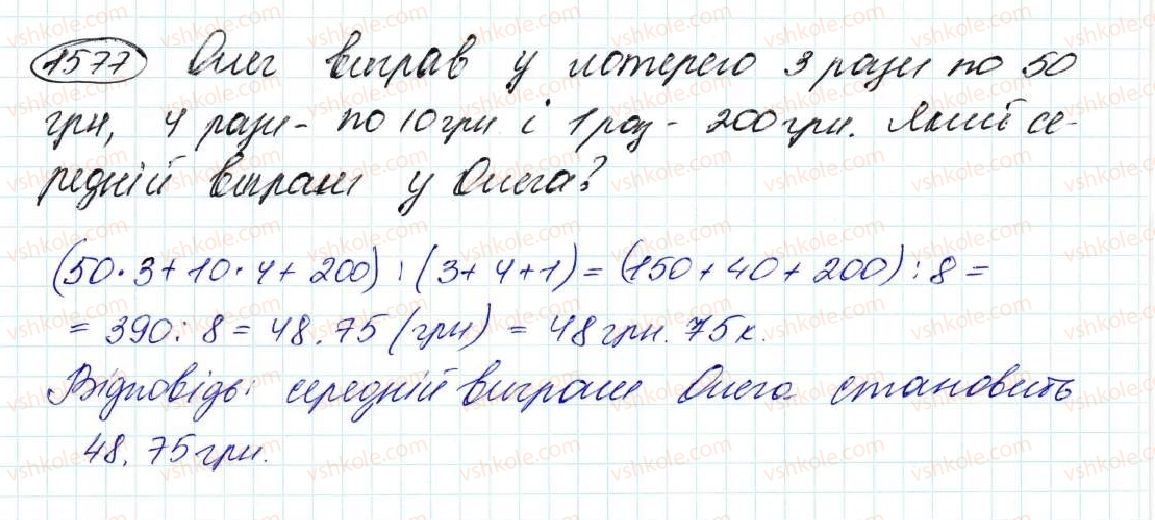 1577 Олег виграв у лотерею 3 рази по 50
грн, 4 рази - по 10 грн і 1 раз - 200 грн. Який се-
редній виграш у Олега?
(50·3+10·4+200):(3+4+1)=(150+40+200):8=
=390:8=48,75(грн)=48грн.75к.
Відповідь: середній виграш Олега становить
48,75грн.